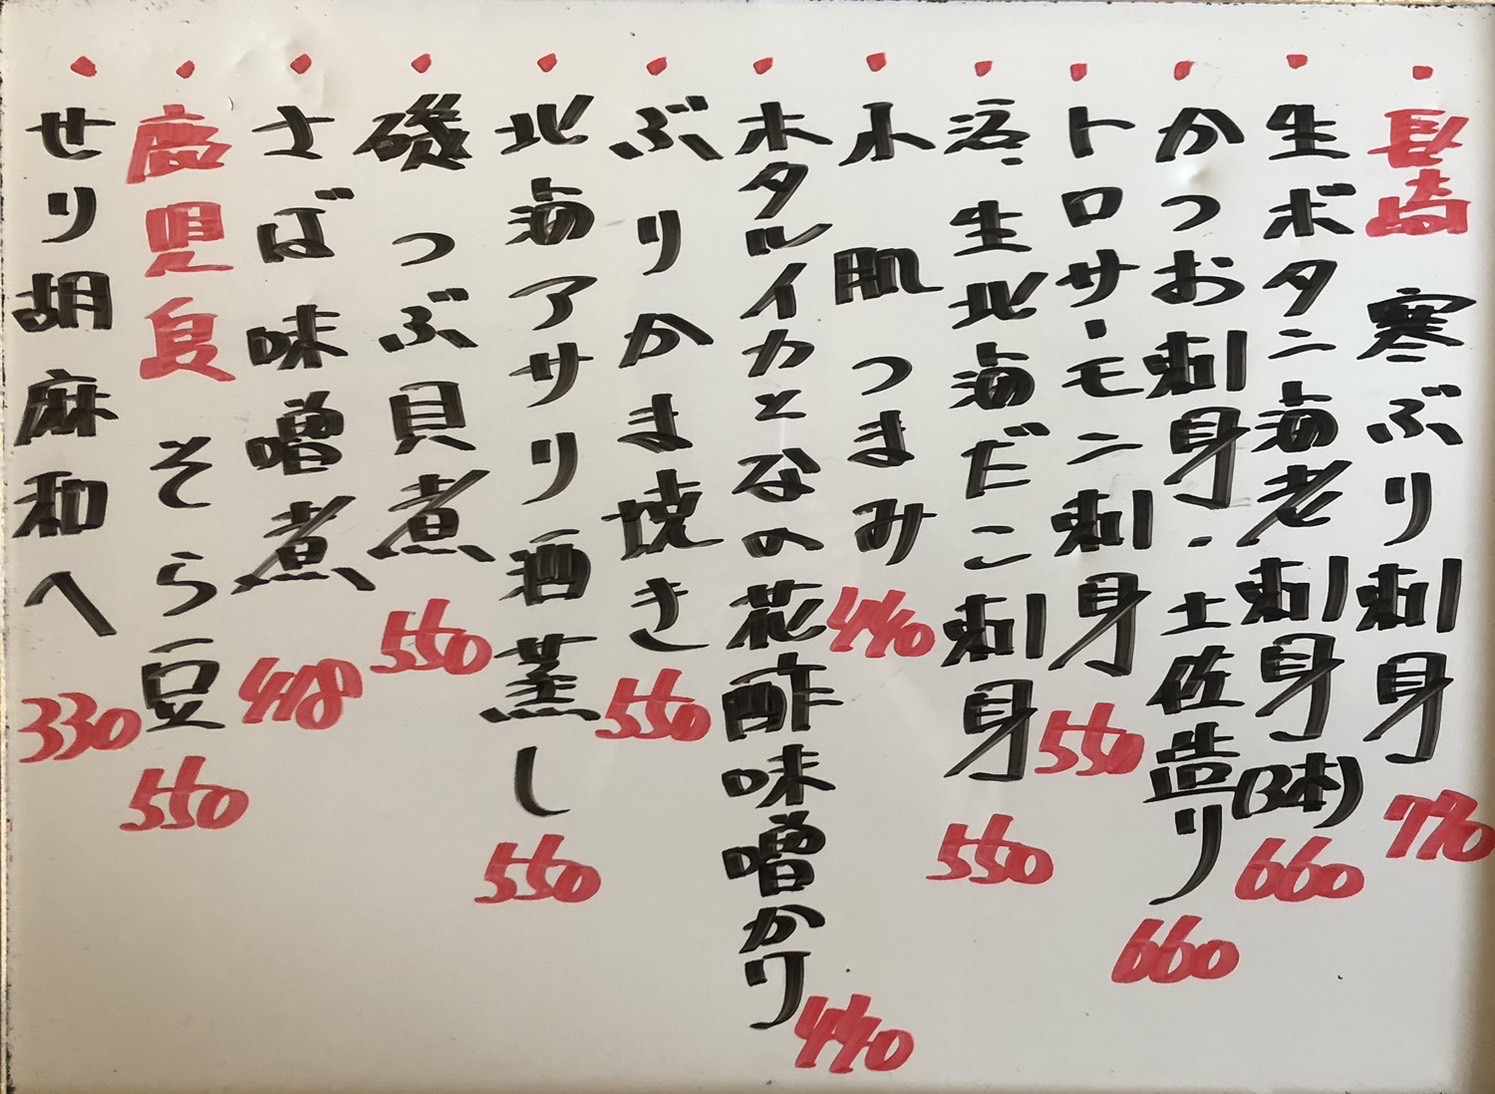 ・長崎 寒ぶり刺身 770
・生ボタン海老刺身(3本) 660
・かつお刺身・土佐造り 660
・トロサーモン刺身 550
・活・生北海だこ刺身 550
・小肌つまみ 440
・ホタルイカとなの花酢味噌かけ 440
・ぶりかま焼き 550
・北海アサリ酒蒸し 550
・磯つぶ貝煮 550
・さば味噌煮 418
・鹿児島 そら豆 550
・せり胡麻和へ 330